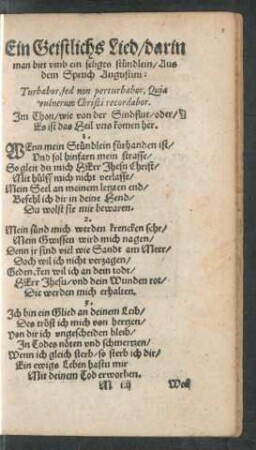 Ein Geistlichs Lied/darin
man bit vmb ein seligs stündlein/Aus
dem Spruch Augustini:
Turbabor, sed non perturbabor, Quia
vulnerum Christi recordabor.
Im Thon/wie von der Sindflut/oder/
Es ist das Heil vns komen her.
1.
WEnn mein Stündlein fürhanden ist/
Vnd sol hinfarn mein strasse/
So gleit du mich HErr Jhesu Christ/
Mit hülff mich nicht verlasse/
Mein Seel an meinem letzten end/
Befehl ich dir in deine Hend/
Du wolst sie mir bewaren.
2.
Mein sünd mich werden krencken sehr/
Mein Gwissen wird mich nagen/
Denn jr sind viel wie Sandt am Meer/
Doch wil ich nicht verzagen/
Gedencken wil ich an dein todt/
HErr Jhesu/vnd dein Wunden rot/
Die werden mich erhalten.
3.
Ich bin ein Glied an deinem Leib/
Des tröst ich mich von hertzen/
Von dir ich vngescheiden bleib/
In Todes nöten vnd schmertzen/
Wenn ich gleich sterb/so sterb ich dir/
Ein ewigs Leben hastu mir
Mit deinem Tod erworben.
M iij Weil